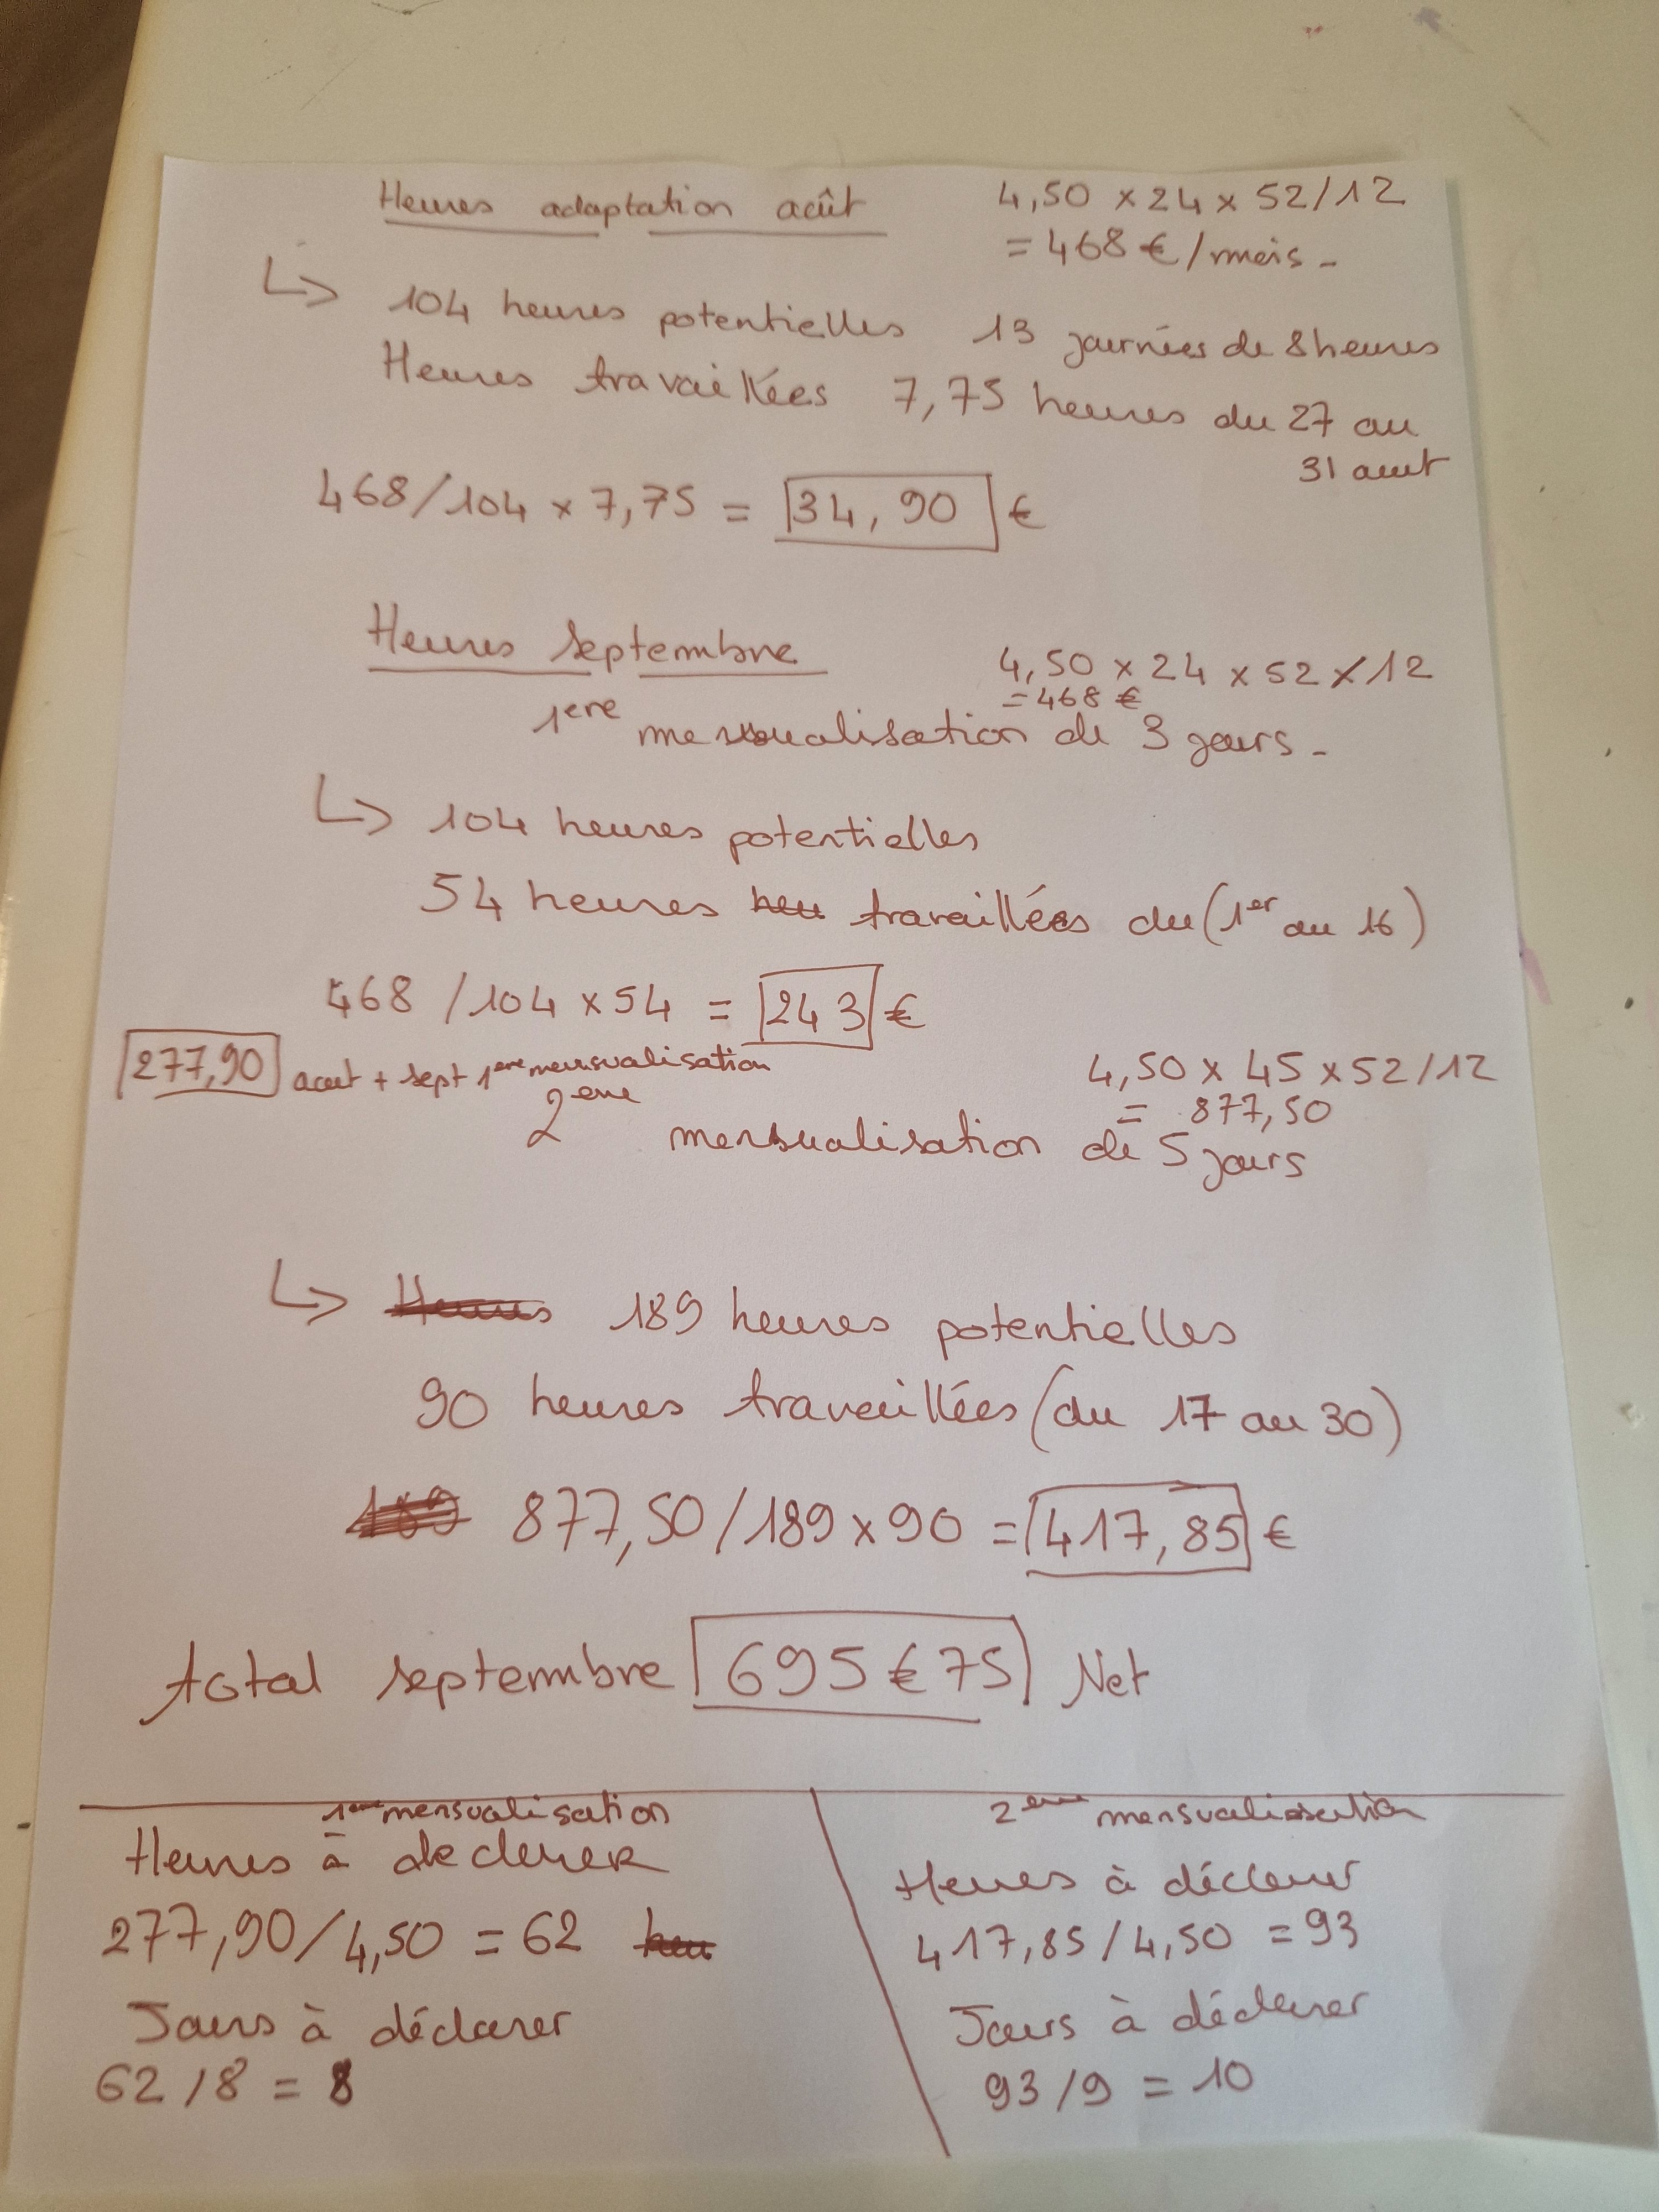 Heures adaptation août
4,50 x 24 x 52/12
= 468 €/mois -
↳ 104 heures potentielles 13 journées de 8 heures
Heures travaillées 7,75 heures du 27 au
31 aout
468/104 x 7,75 = 34,90 €
Heures septembre
4,50 x 24 x 52 x 12
= 468 €
1ere mensualisation de 3 jours -
↳ 104 heures potentielles
54 heures heu travaillées du (1er au 16)
468 / 104 x 54 = 243 €
277,90 aout + sept 1ere mensualisation
4,50 x 45 x 52/12
= 877,50
2eme mensualisation de 5 jours
↳ Heures 189 heures potentielles
90 heures travaillées (du 17 au 30)
189 877,50/189 x 90 = 417,85 €
total septembre 695 € 75 Net
1ere mensualisation
Heures à declarer
277,90/4,50 = 62 heu
Jours à déclarer
62 / 8 = 8
2eme mensualisation
Heures à déclarer
417,85 / 4,50 = 93
Jours à déclarer
93 / 9 = 10